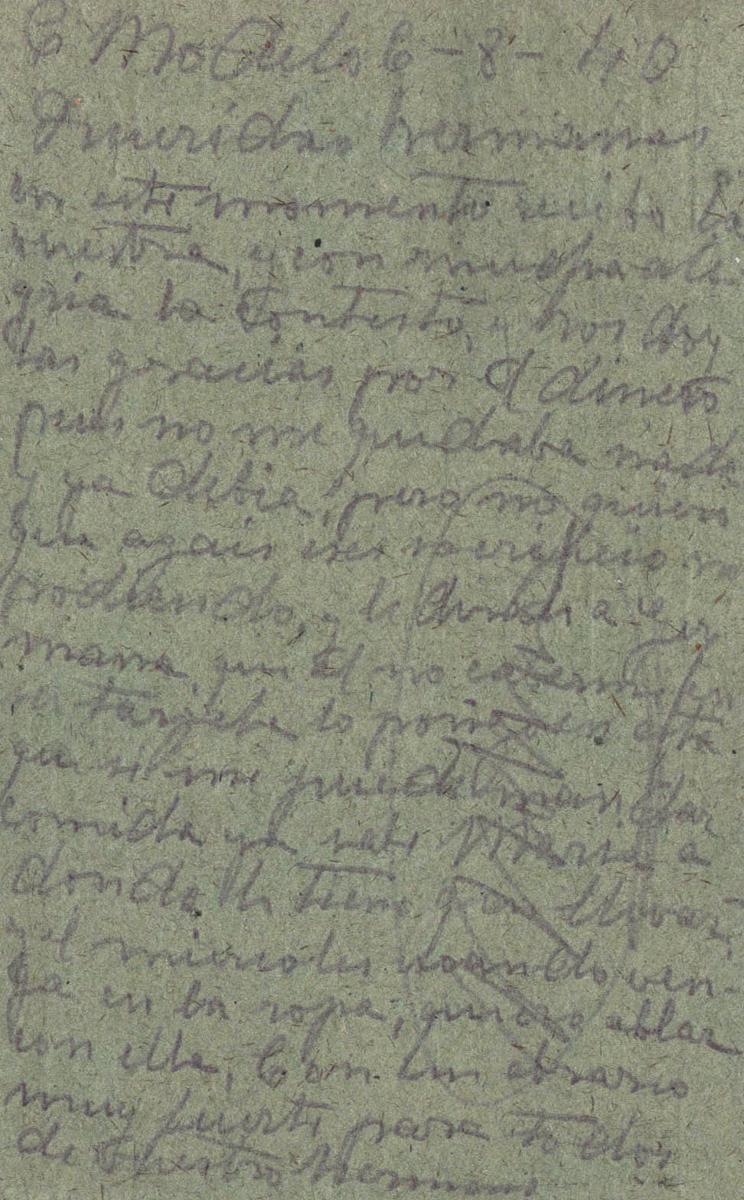 C Modelo 6-8-40
Queridas hermanas
en este momento recibo la
vuestra, y con mucha ale
gria la contesto, y hos doy
las gracias por el dinero
pues no me quedaba nada
y ya debia, pero no quiero
que agais ese sacrificio no
podiendo, y le direis a
mana, que el no
su targeta lo pongo en esta
que si me puede mandar
comida ya sabe Maria a
donde la tiene que llevar,
y el miercoles cuando ven-
ga en la ropa, quiero ablar
con ella, Con un abrazo
muy fuerte para todos
de vuestro hermano